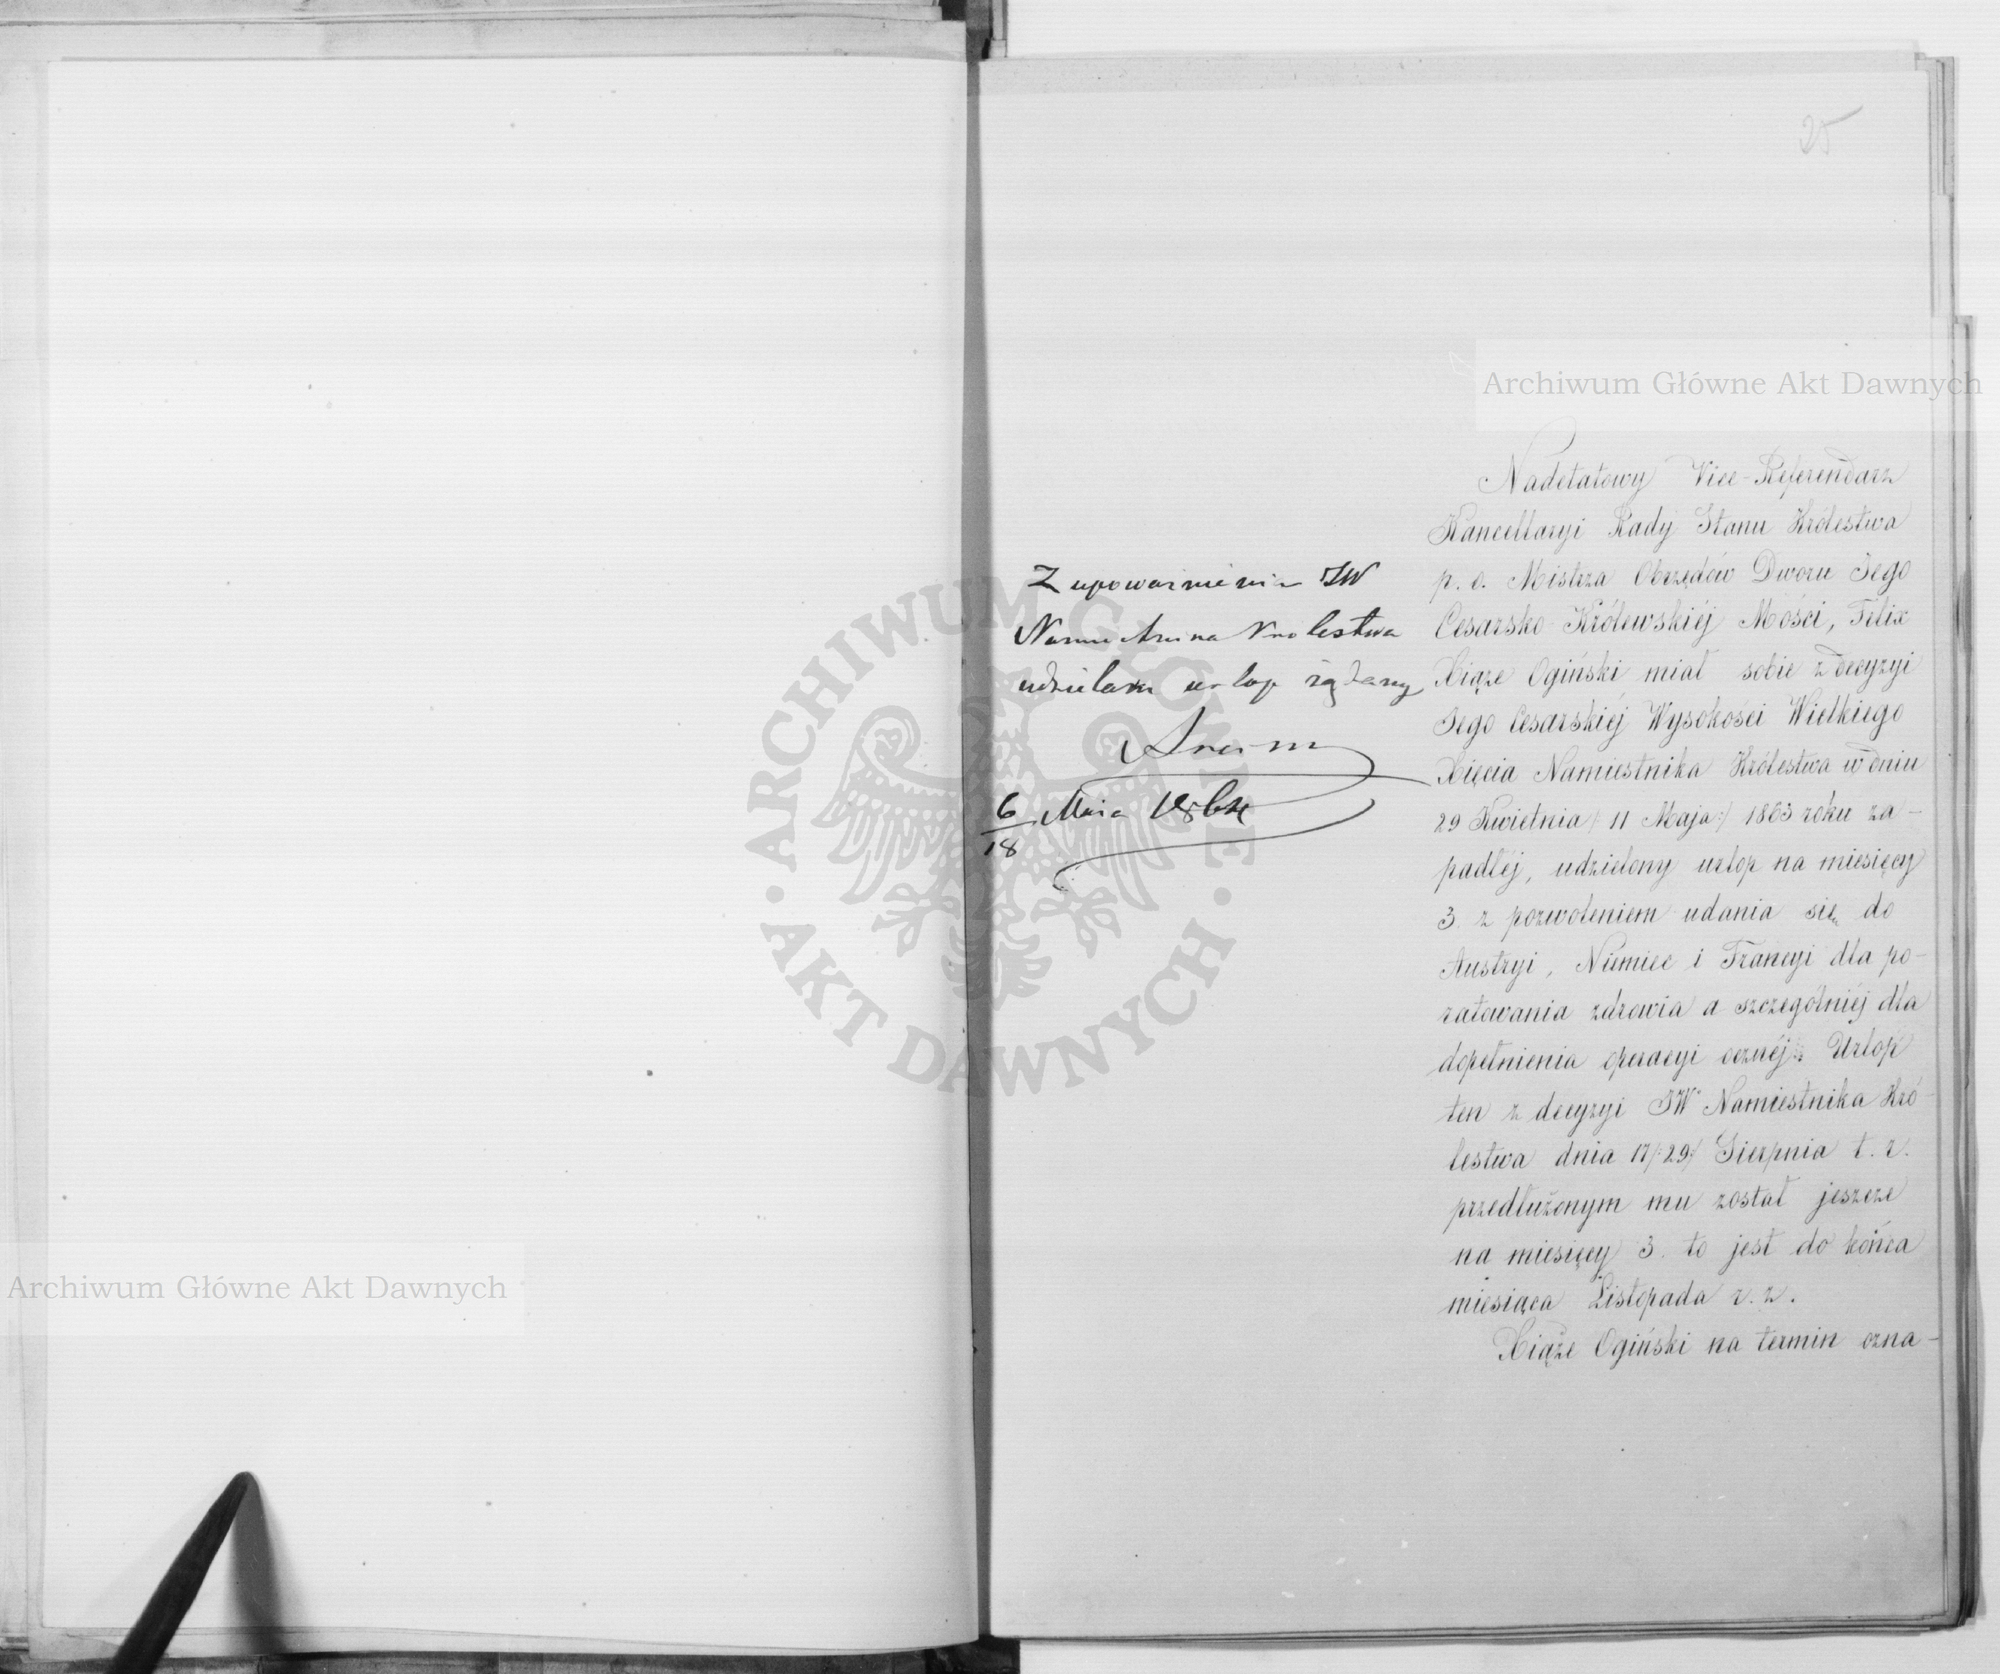 25
Nadetatowy Vice-Referendarz
Kancellaryi Rady Stanu Królestwa
p. o. Mistrza Obrzędów Dworu Jego
Cesarsko-Królewskiéj Mości, Felix
Xiąże Ogiński miał sobie z decyzyi
Jego Cesarskiéj Wysokości Wielkiego
Xięcia Namiestnika Królestwa w dniu
29 Kwietnia /: 11 Maja :/ 1863 roku za-
padłéj, udzielony urlop na miesięcy
3. z pozwoleniem udania się do
Austryi, Niemiec i Francyi dla po-
ratowania zdrowia a szczególniéj dla
dopełnienia operacyi ocznéj. Urlop
ten z decyzyi JW Namiestnika Kró-
lestwa dnia 17 /: 29 :/ Sierpnia t. r.
przedłużonym mu został jeszcze
na miesięcy 3. to jest do końca
miesiąca Listopada r. z.
Xiąże Ogiński na termin ozna-
Z upoważnienia JW
Namiestnika Królestwa
udzielam urlop żądany
6/18 Maia 1864
Archiwum Główne Akt Dawnych
Archiwum Główne Akt Dawnych
ARCHIWUM GŁÓWNE
AKT DAWNYCH